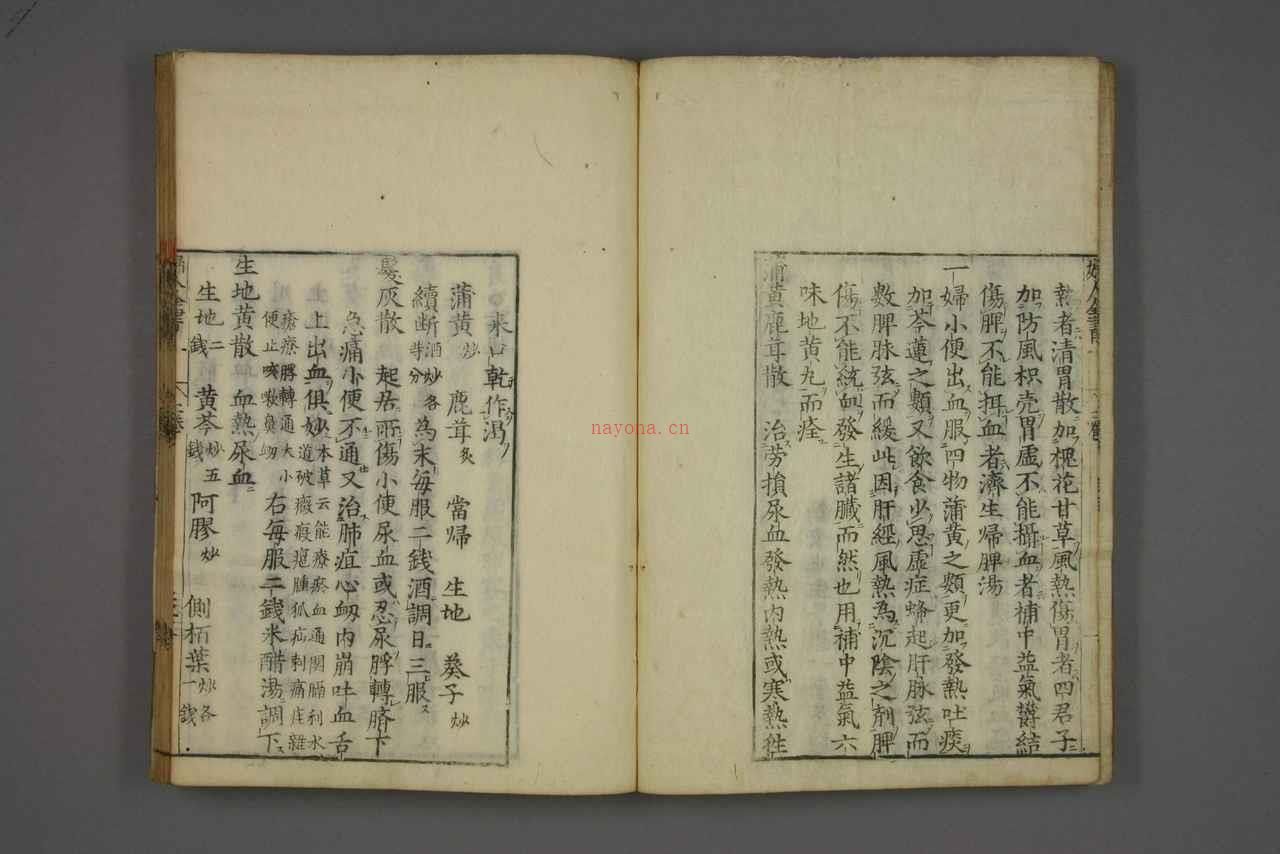 熱者清胃散加槐花甘草風熱傷胃者四君子
加防風枳壳胃虛不能攝血者補中益氣欝結
傷脾不能攝血者濟生帰脾湯
一婦小便出血服四物蒲黄之類更加發熱吐痰
加芩連之類又飲食少思虛症蜂起肝脉弦而
數脾脉弦而緩此因肝經風熱為沉陰之剤脾
傷不能統血發生諸臟而然也用補中益氣六
味地黄丸而痊
蒲黄鹿茸散 治劳損尿血發熱内熱或寒熱徃
来口乾作渴
蒲黄炒 鹿茸炙 當帰 生地 葵子炒
續断酒炒各等分 為末每服二銭酒調日三服
髮灰散 起居所傷小便尿血或忍尿脬轉臍下
急痛小便不通又治肺疽心衂内崩吐血舌
上出血俱妙本草云能療瘀血通関膈利水
道破癥瘕癰腫狐疝刺痛疰雜
瘡療脬轉通大小
便止咳嗽鼻衂 右每服二銭米醋湯調下
生地黄散 血熱尿血
生地二銭 黄芩炒五銭 阿膠炒 側栢葉炒各一銭
nayona.cn